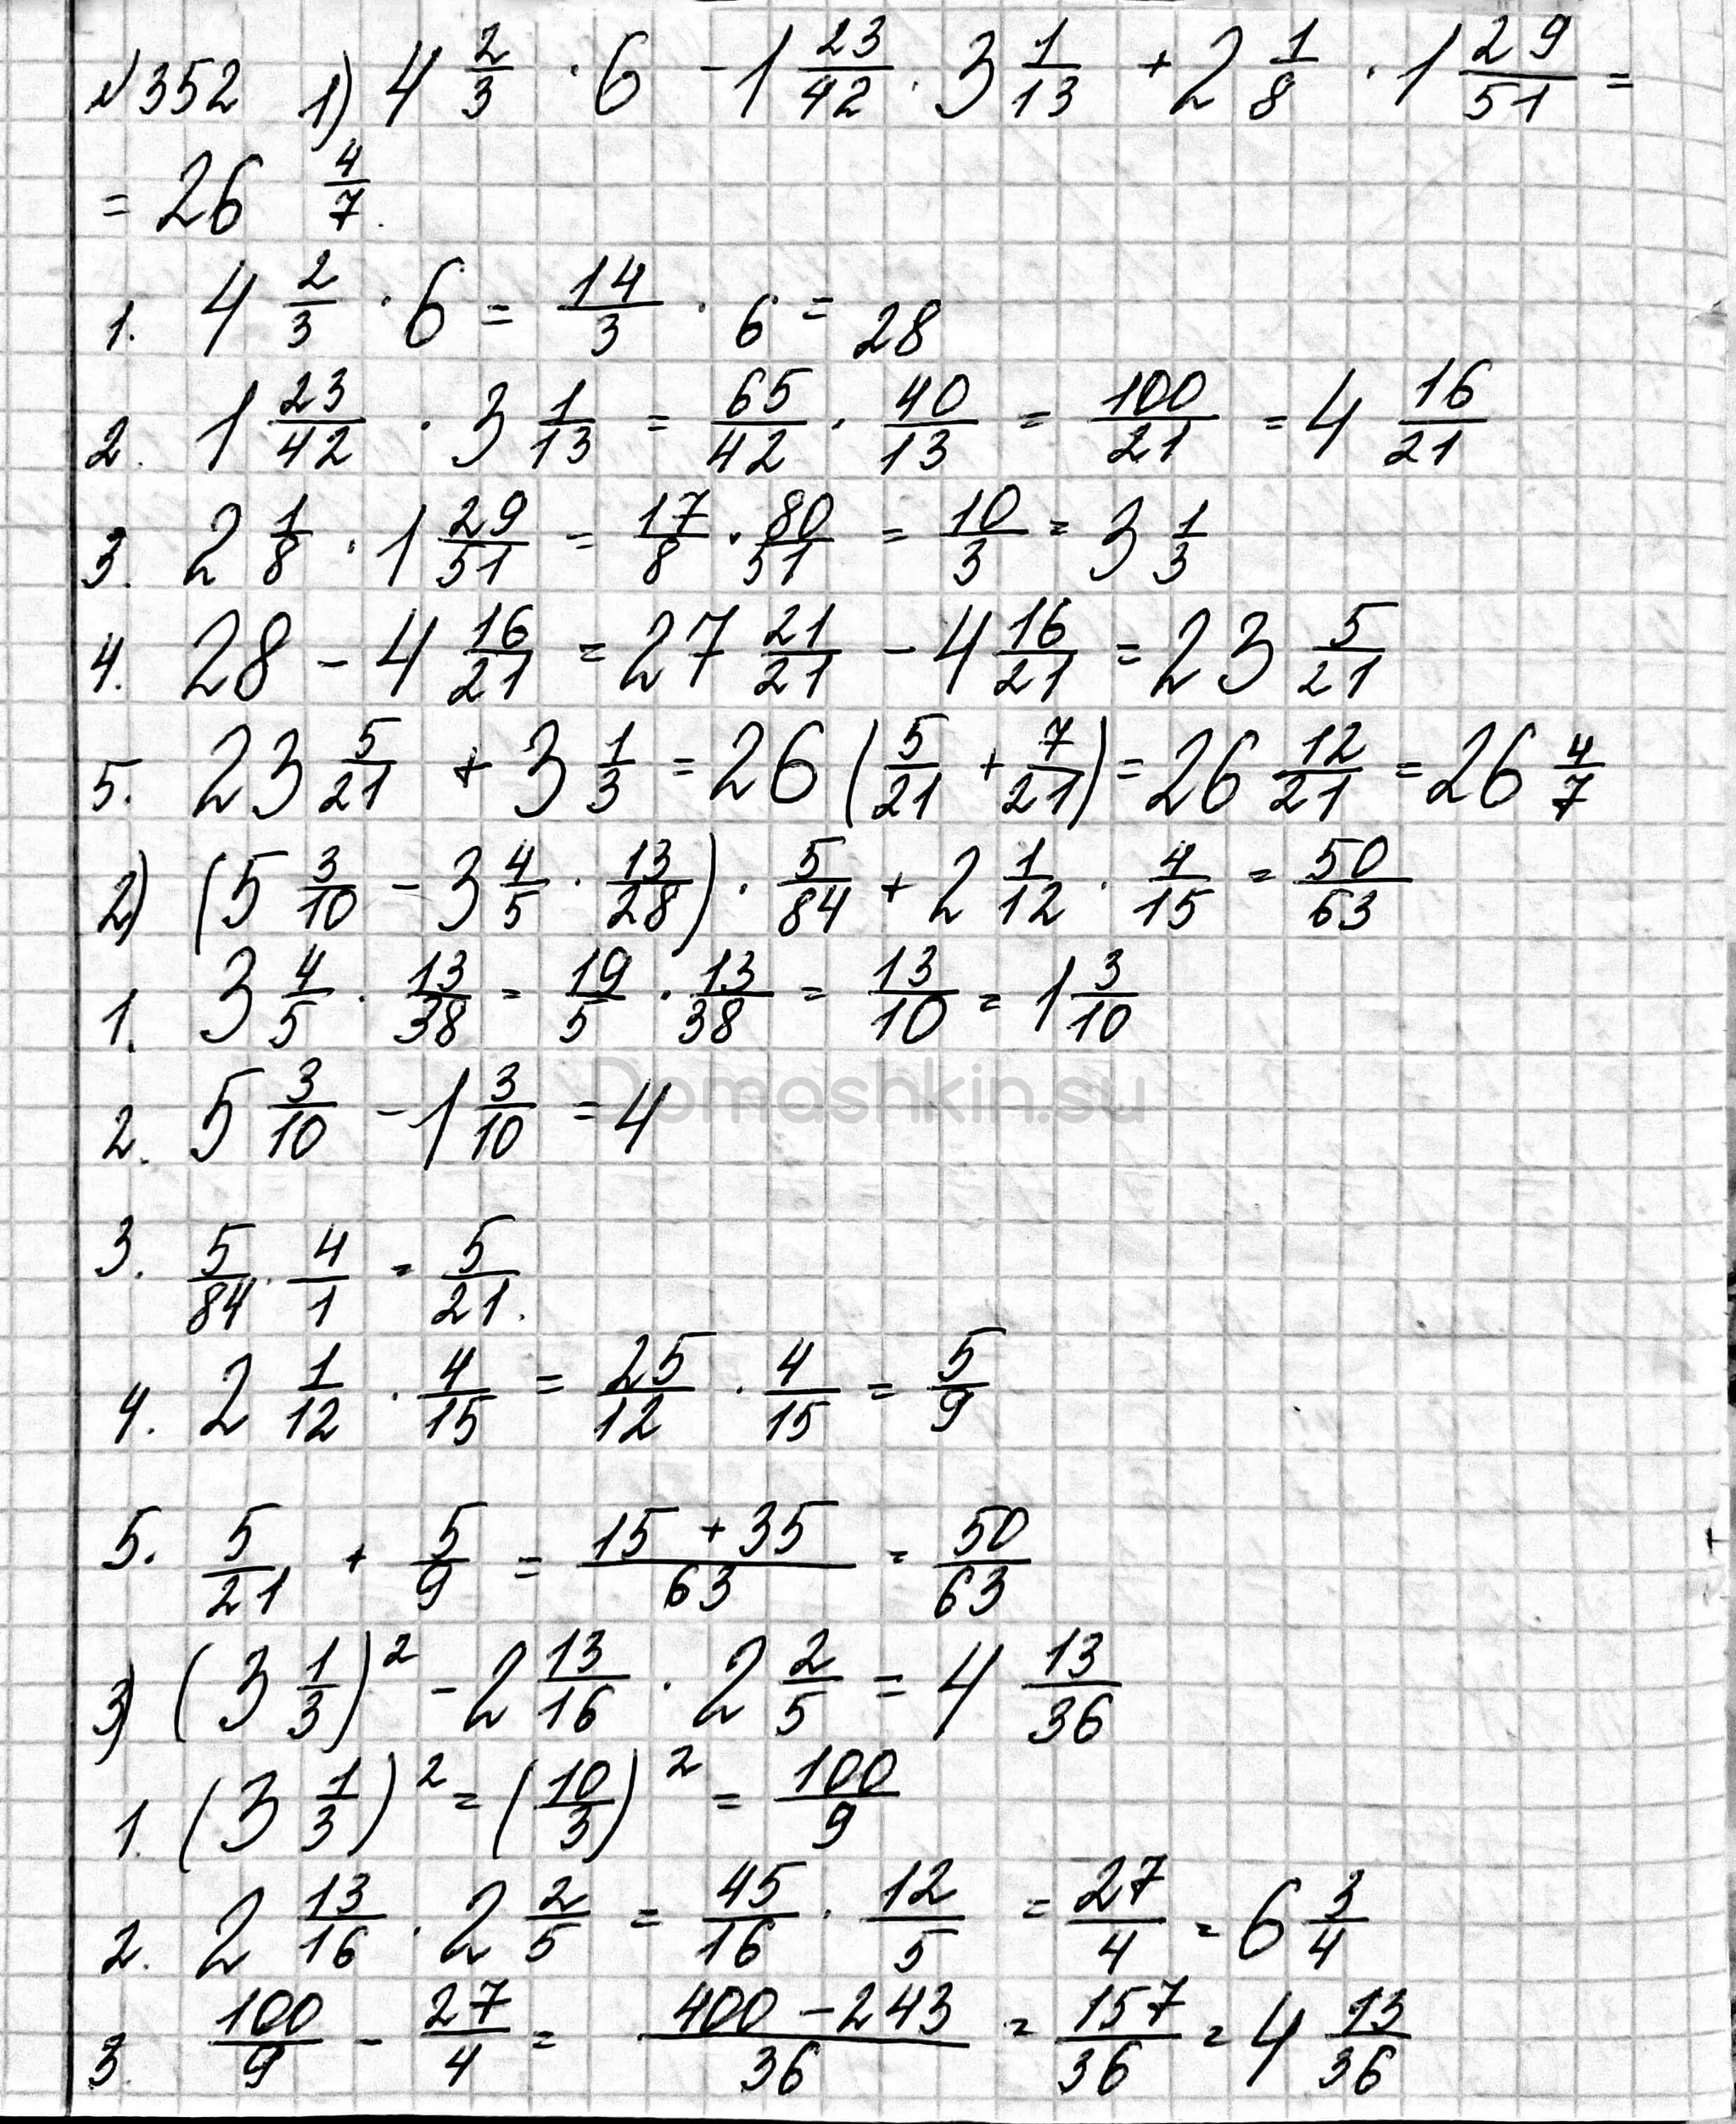 №352 1) 4 2/3 · 6 - 1 23/42 · 3 1/13 + 2 1/8 · 1 29/51 =
= 26 4/7.
1. 4 2/3 · 6 = 14/3 · 6 = 28
2. 1 23/42 · 3 1/13 = 65/42 · 40/13 = 100/21 = 4 16/21
3. 2 1/8 · 1 29/51 = 17/8 · 80/51 = 10/3 = 3 1/3
4. 28 - 4 16/21 = 27 21/21 - 4 16/21 = 23 5/21
5. 23 5/21 + 3 1/3 = 26 (5/21 + 7/21) = 26 12/21 = 26 4/7
2) (5 3/10 - 3 4/5 · 13/28) · 5/84 + 2 1/12 · 4/15 = 50/63
1. 3 4/5 · 13/38 = 19/5 · 13/38 = 13/10 = 1 3/10
2. 5 3/10 - 1 3/10 = 4
Domashkin.su
3. 5/84 · 4/1 = 5/21.
4. 2 1/12 · 4/15 = 25/12 · 4/15 = 5/9
5. 5/21 + 5/9 = 15 + 35/63 = 50/63
3) (3 1/3)² - 2 13/16 · 2 2/5 = 4 13/36
1. (3 1/3)² = (10/3)² = 100/9
2. 2 13/16 · 2 2/5 = 45/16 · 12/5 = 27/4 = 6 3/4
3. 100/9 - 27/4 = 400 - 243/36 = 157/36 = 4 13/36